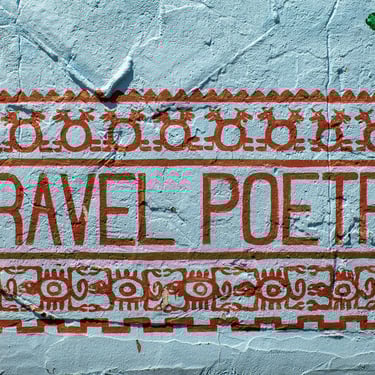 RAVEL POETR